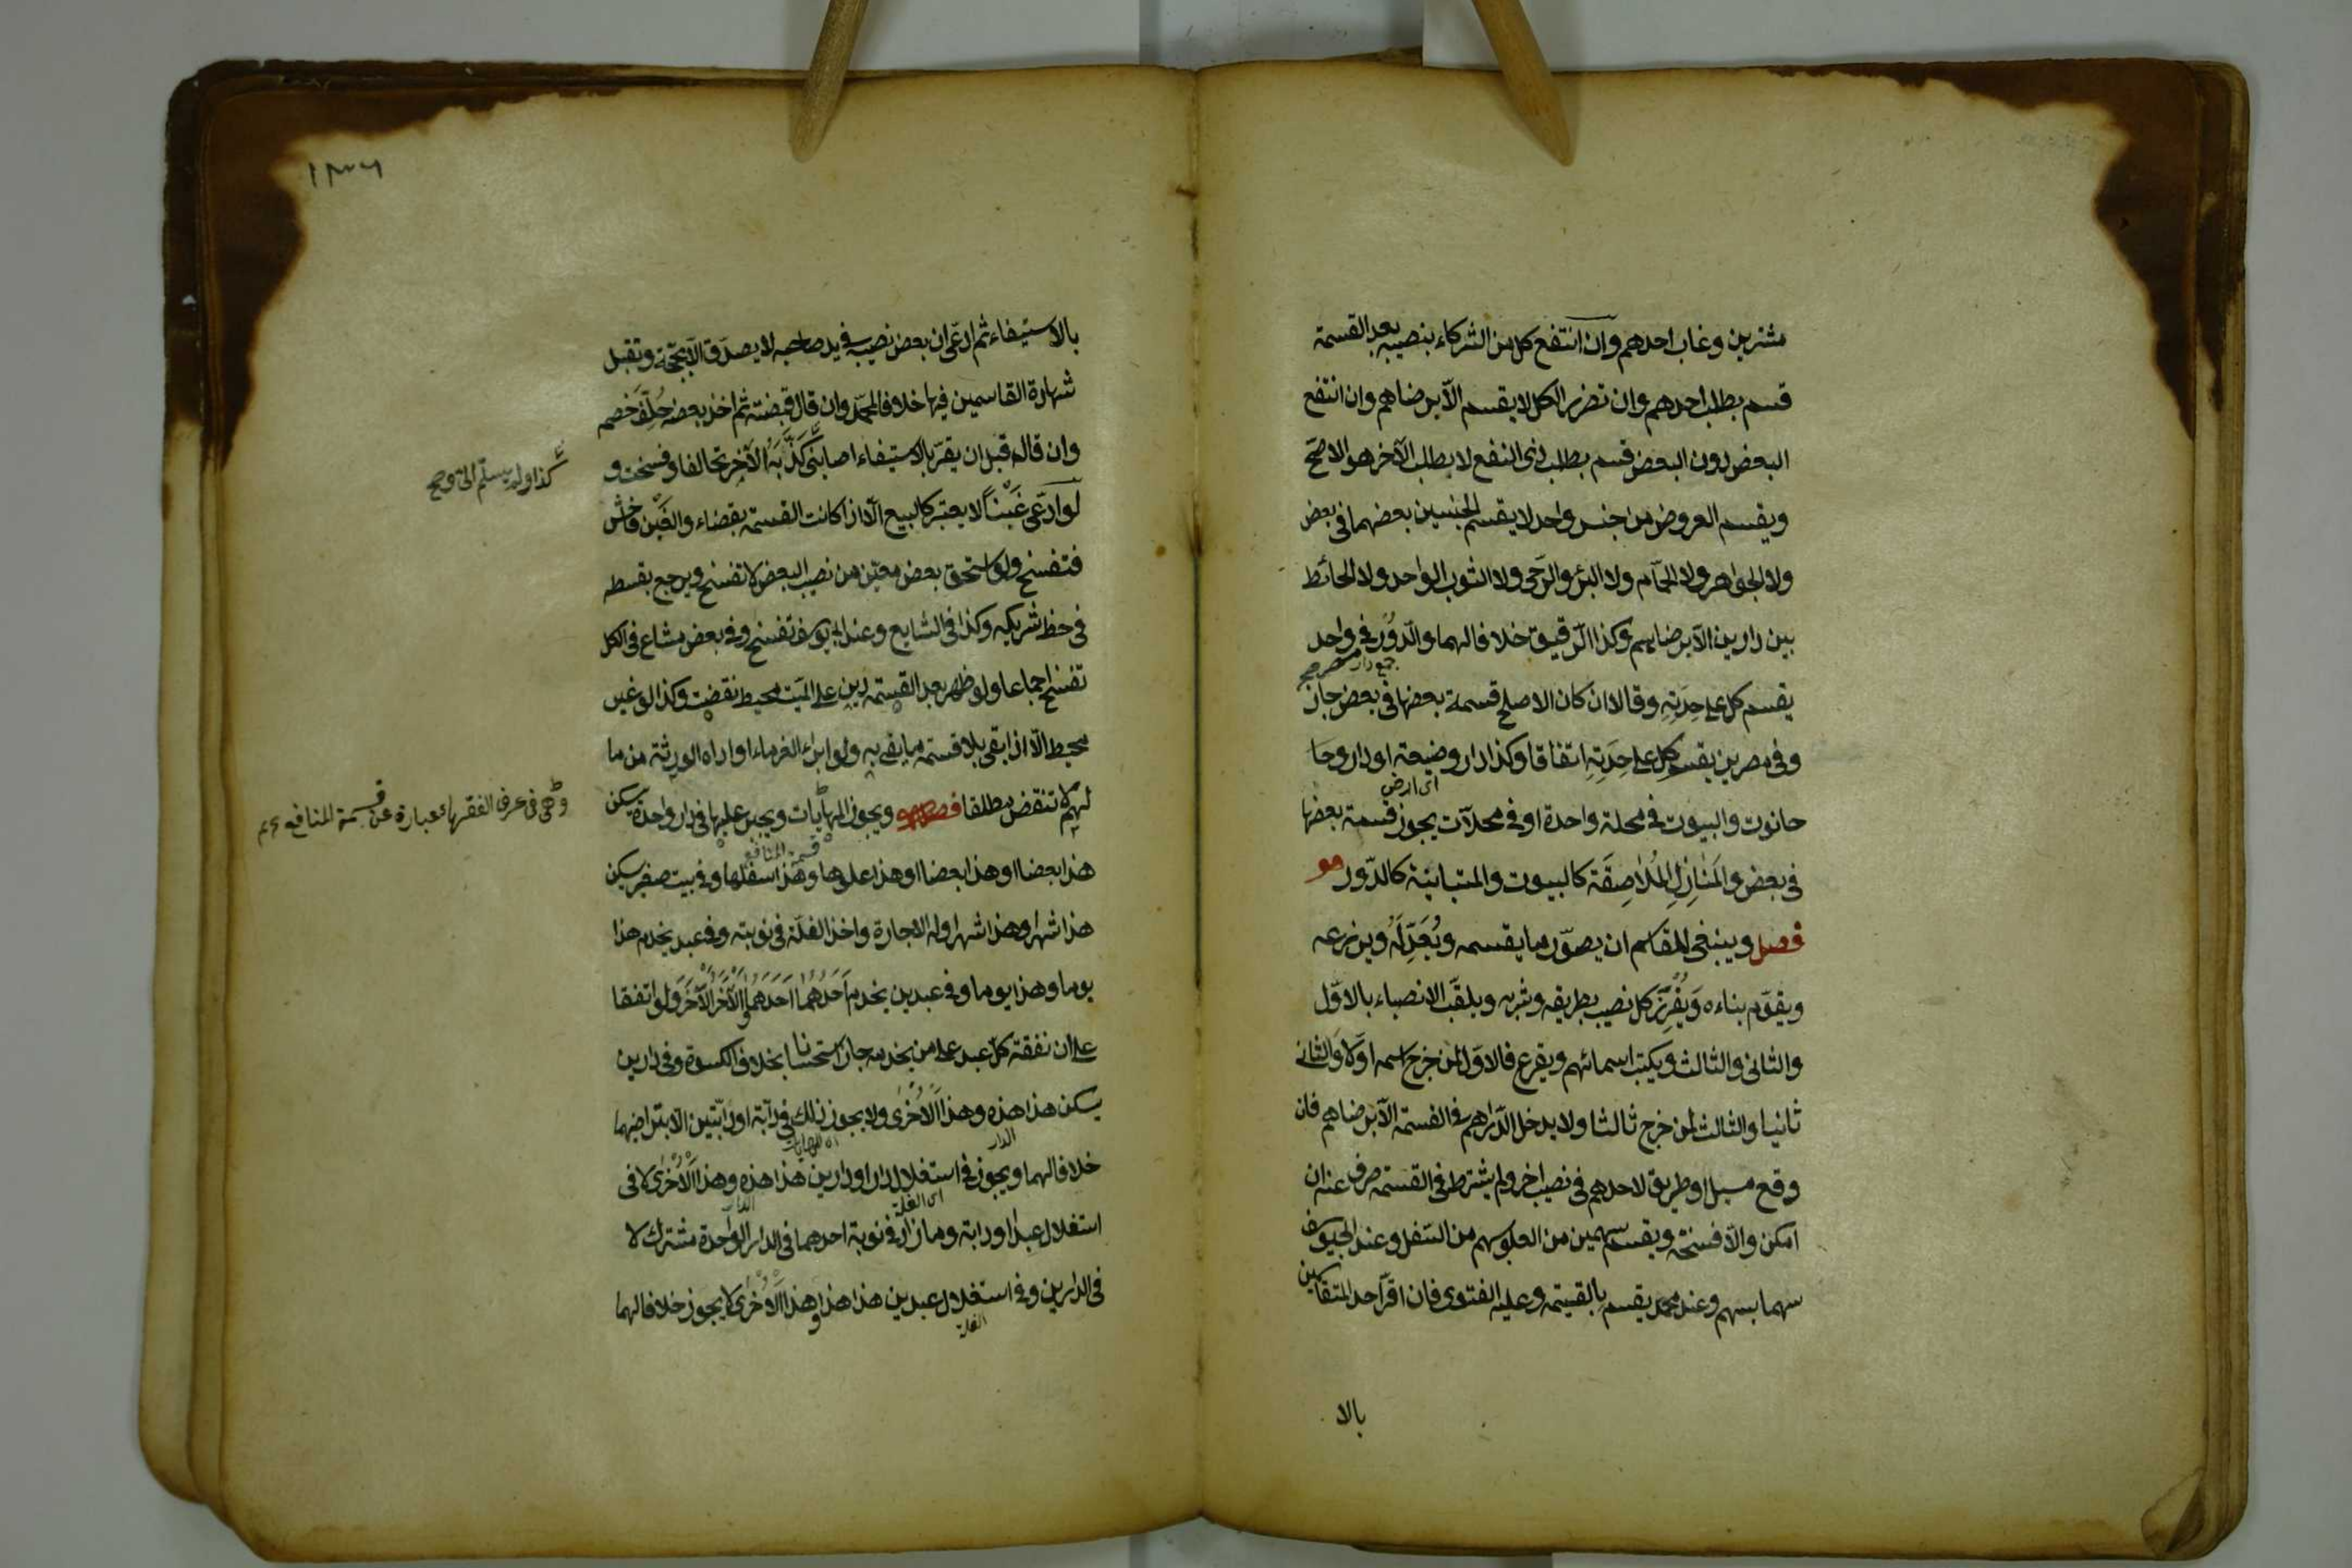 مشترين وغاب احدهم وان انتفع كل من الشركاء بنصيبه بعد القسمة
قسم بطلب احدهم وان تضرر الكل لا يقسم الّا برضاهم وان انتفع
البعض دون البعض قسم بطلب ذى النفع لا بطلب الآخر هو الاصحّ
ويقسم العروض من جنس واحد لا يقسم الجنسين بعضهما فى بعض
ولا الجواهر ولا الحمّام ولا البئر والرحى ولا الثوب الواحد ولا الحائط
بين دارين الّا برضاهم وكذا الرّقيق خلافا لهما والدّور فى واحد
جمع دار
مصر صح
يقسم كل على حِدَتِهِ وقالا ان كان الاصلح قسمة بعضها فى بعض جاز
وفى مصرين يقسم كل على حِدَتِهِ اتفاقا وكذا دار وضيعة او دار وحا
اى ارض
حانوت والبيوت فى محلة واحدة او فى محلات يجوز قسمة بعضها
فى بعض والمَنازِلِ المُلَاصِقَة كالبيوت والمتباينة كالدّور
فصل وينبغى للقاسم ان يصوّر ما يقسمه ويُعَدِّلَهُ ويذرعه
ويقوّم بناءه وَيُفْرِزَ كل نصيب بطريقه وشربه ويلقّب الانصباء بالاوّل
والثانى والثالث ويكتب اسمائهم ويقرع فالاوّل لمن خرج اسمه اوّلا والثانى
ثانيا والثالث لمن خرج ثالثا ولا يدخل الدّراهم فى القسمة الّا برضاهم فان
وقع مسيل او طريق لاحدهم فى نصيب اخر ولم يشترط فى القسمة صرف عنه ان
امكن والّا فسخت ويقسم سهمين من العلو بسهم من السّفل وعند ابى يوسف
سهما بسهم وعند محمد يقسم بالقيمة وعليه الفتوى فان اقرّ احد المتقاسمين
بالا
١٣٦
بالاستيفاء ثم ادّعى ان بعض نصيبه فى يد صاحبه لا يصدّق الّا بحجّة وتقبل
شهادة القاسمين فيها خلافا لمحمّد وان قال قبضته ثم اخذ بعضه حُلِّفَ خصمه
وان قال قبل ان يقرّ بالاستيفاء اصابنى كَذَا وكَذَّبَهُ الآخر تحالفا وفسخت و
كذا ولم يسلّم الىّ وصح
لو ادّعى غَبْناً لا يعتبر كالبيع الّا اذا كانت القسمة بقضاء والغَبْن فاحش
فتفسخ ولو استحق بعض معيّن من نصيب البعض لا تفسخ ويرجع بقسطه
فى حظ شريكه وكذا فى الشايع وعند ابى يوسف تفسخ وفى بعض مشاع فى الكل
تفسخ اجماعا ولو ظهر بعد القسمة دين على الميّت محيط نقضت وكذا لو غير
محيط الّا اذا بقى بلا قسمة ما يفى به ولو ابراء الغرماء او اداه الورثة من ما
لهم لا تنقض مطلقا فصل ويجوز المهايات ويجبر عليها فى دار واحدة يسكن
وهى فى عرف الفقهاء عبارة عن قسمة المنافع
قسمة المنافع
هذا بعضا وهذا بعضا او هذا علوها وهذا اسفلها وفى بيت صغير يسكن
هذا شهرا وهذا شهرا وله الاجارة واخذ الغلّة فى نوبته وفى عبد يخدم هذا
يوما وهذا يوما وفى عبدين يخدم اَحَدُهُمَا اَحَدَهُمَا والآخرُ الآخرَ ولو اتفقا
على ان نفقة كلّ عبد على من يخدمه جاز استحسانا بخلاف الكسوة وفى دارين
يسكن هذا هذه وهذا الاُخْرى ولا يجوز ذلك فى دابّة او دابّتين الّا بتراضيهما
الدار
خلافا لهما ويجوز فى استغلال دار او دارين هذا هذه وهذا الاُخْرى لا فى
اى الغلة
الدار
استغلال عبد او دابة وما زاد فى نوبة احدهما فى الدار الواحدة مشترك لا
فى الدارين وفى استغلال عبدين هذا هذا وهذا الاُخْرى لا يجوز خلافا لهما
الغلة